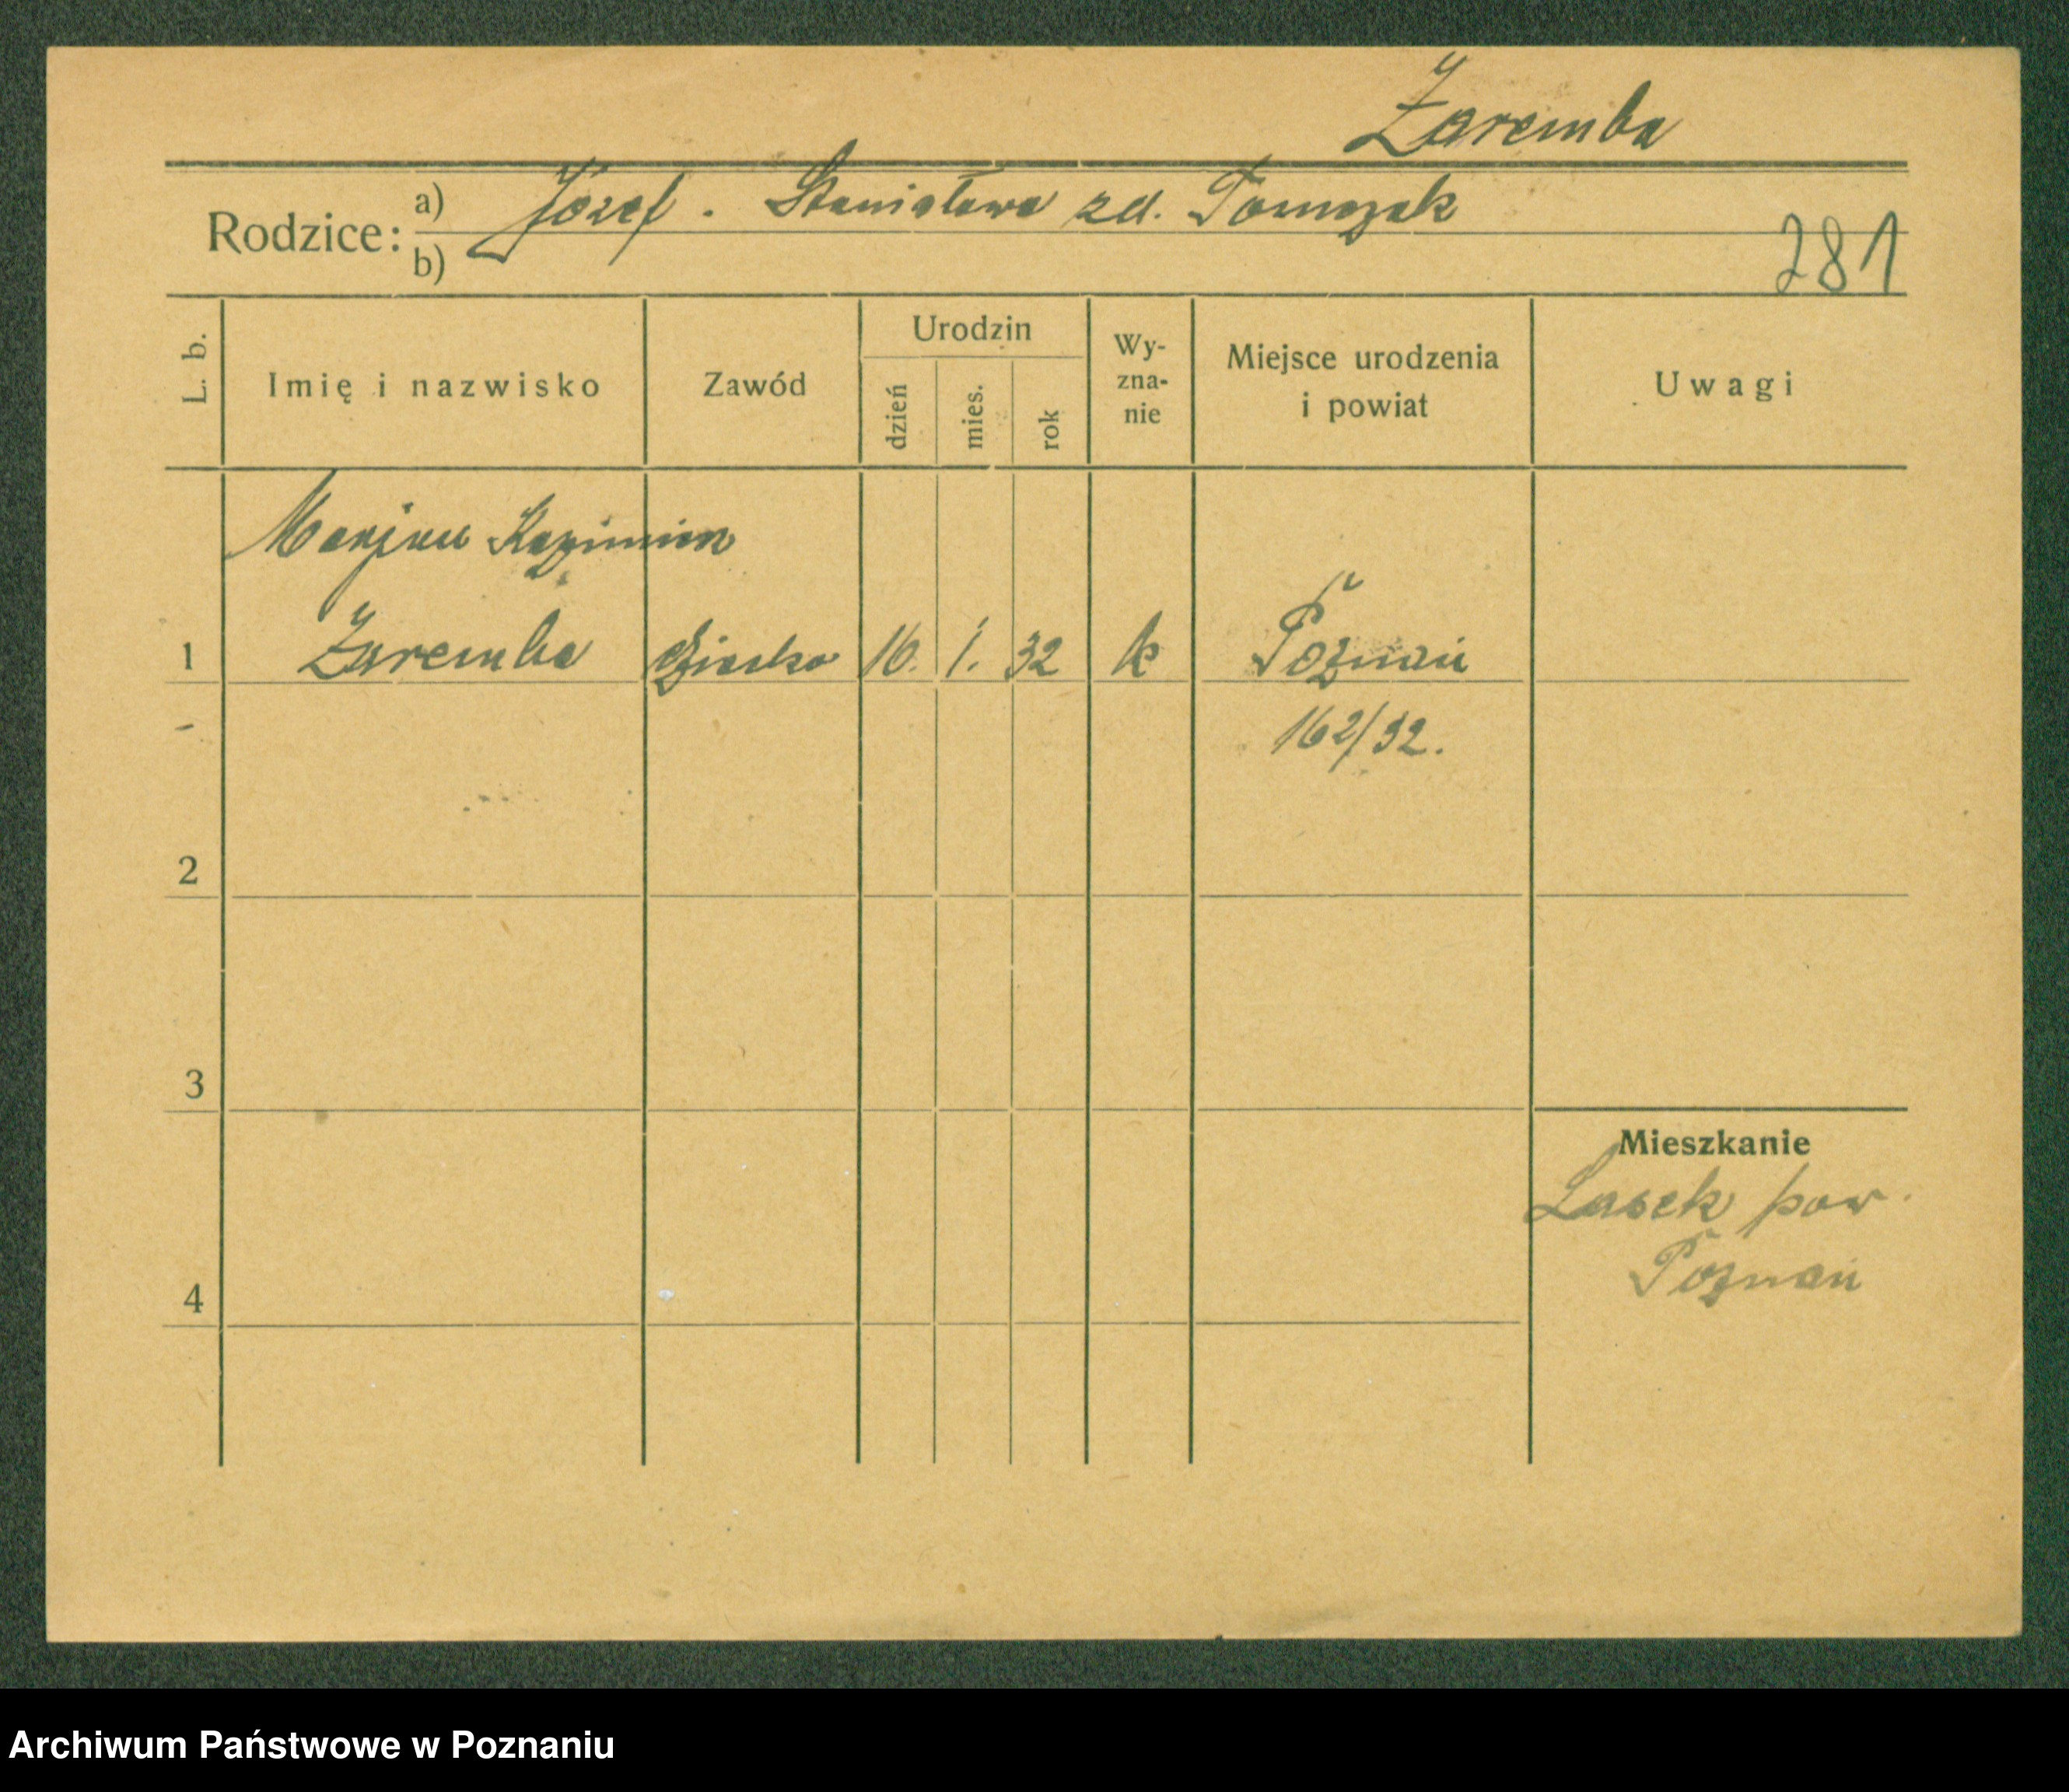 Zaremba
Rodzice: a) Józef. Stanisława zd. Tomczak
b)
281
L. b.
Imię i nazwisko
Zawód
Urodzin
dzień
mies.
rok
Wy-
zna-
nie
Miejsce urodzenia
i powiat
Uwagi
Marjan Kazimierz
1 Zaremba dziecko 16. 1. 32 k Poznań
162/32.
2
3
Mieszkanie
Lasek pow.
Poznań
4
Archiwum Państwowe w Poznaniu